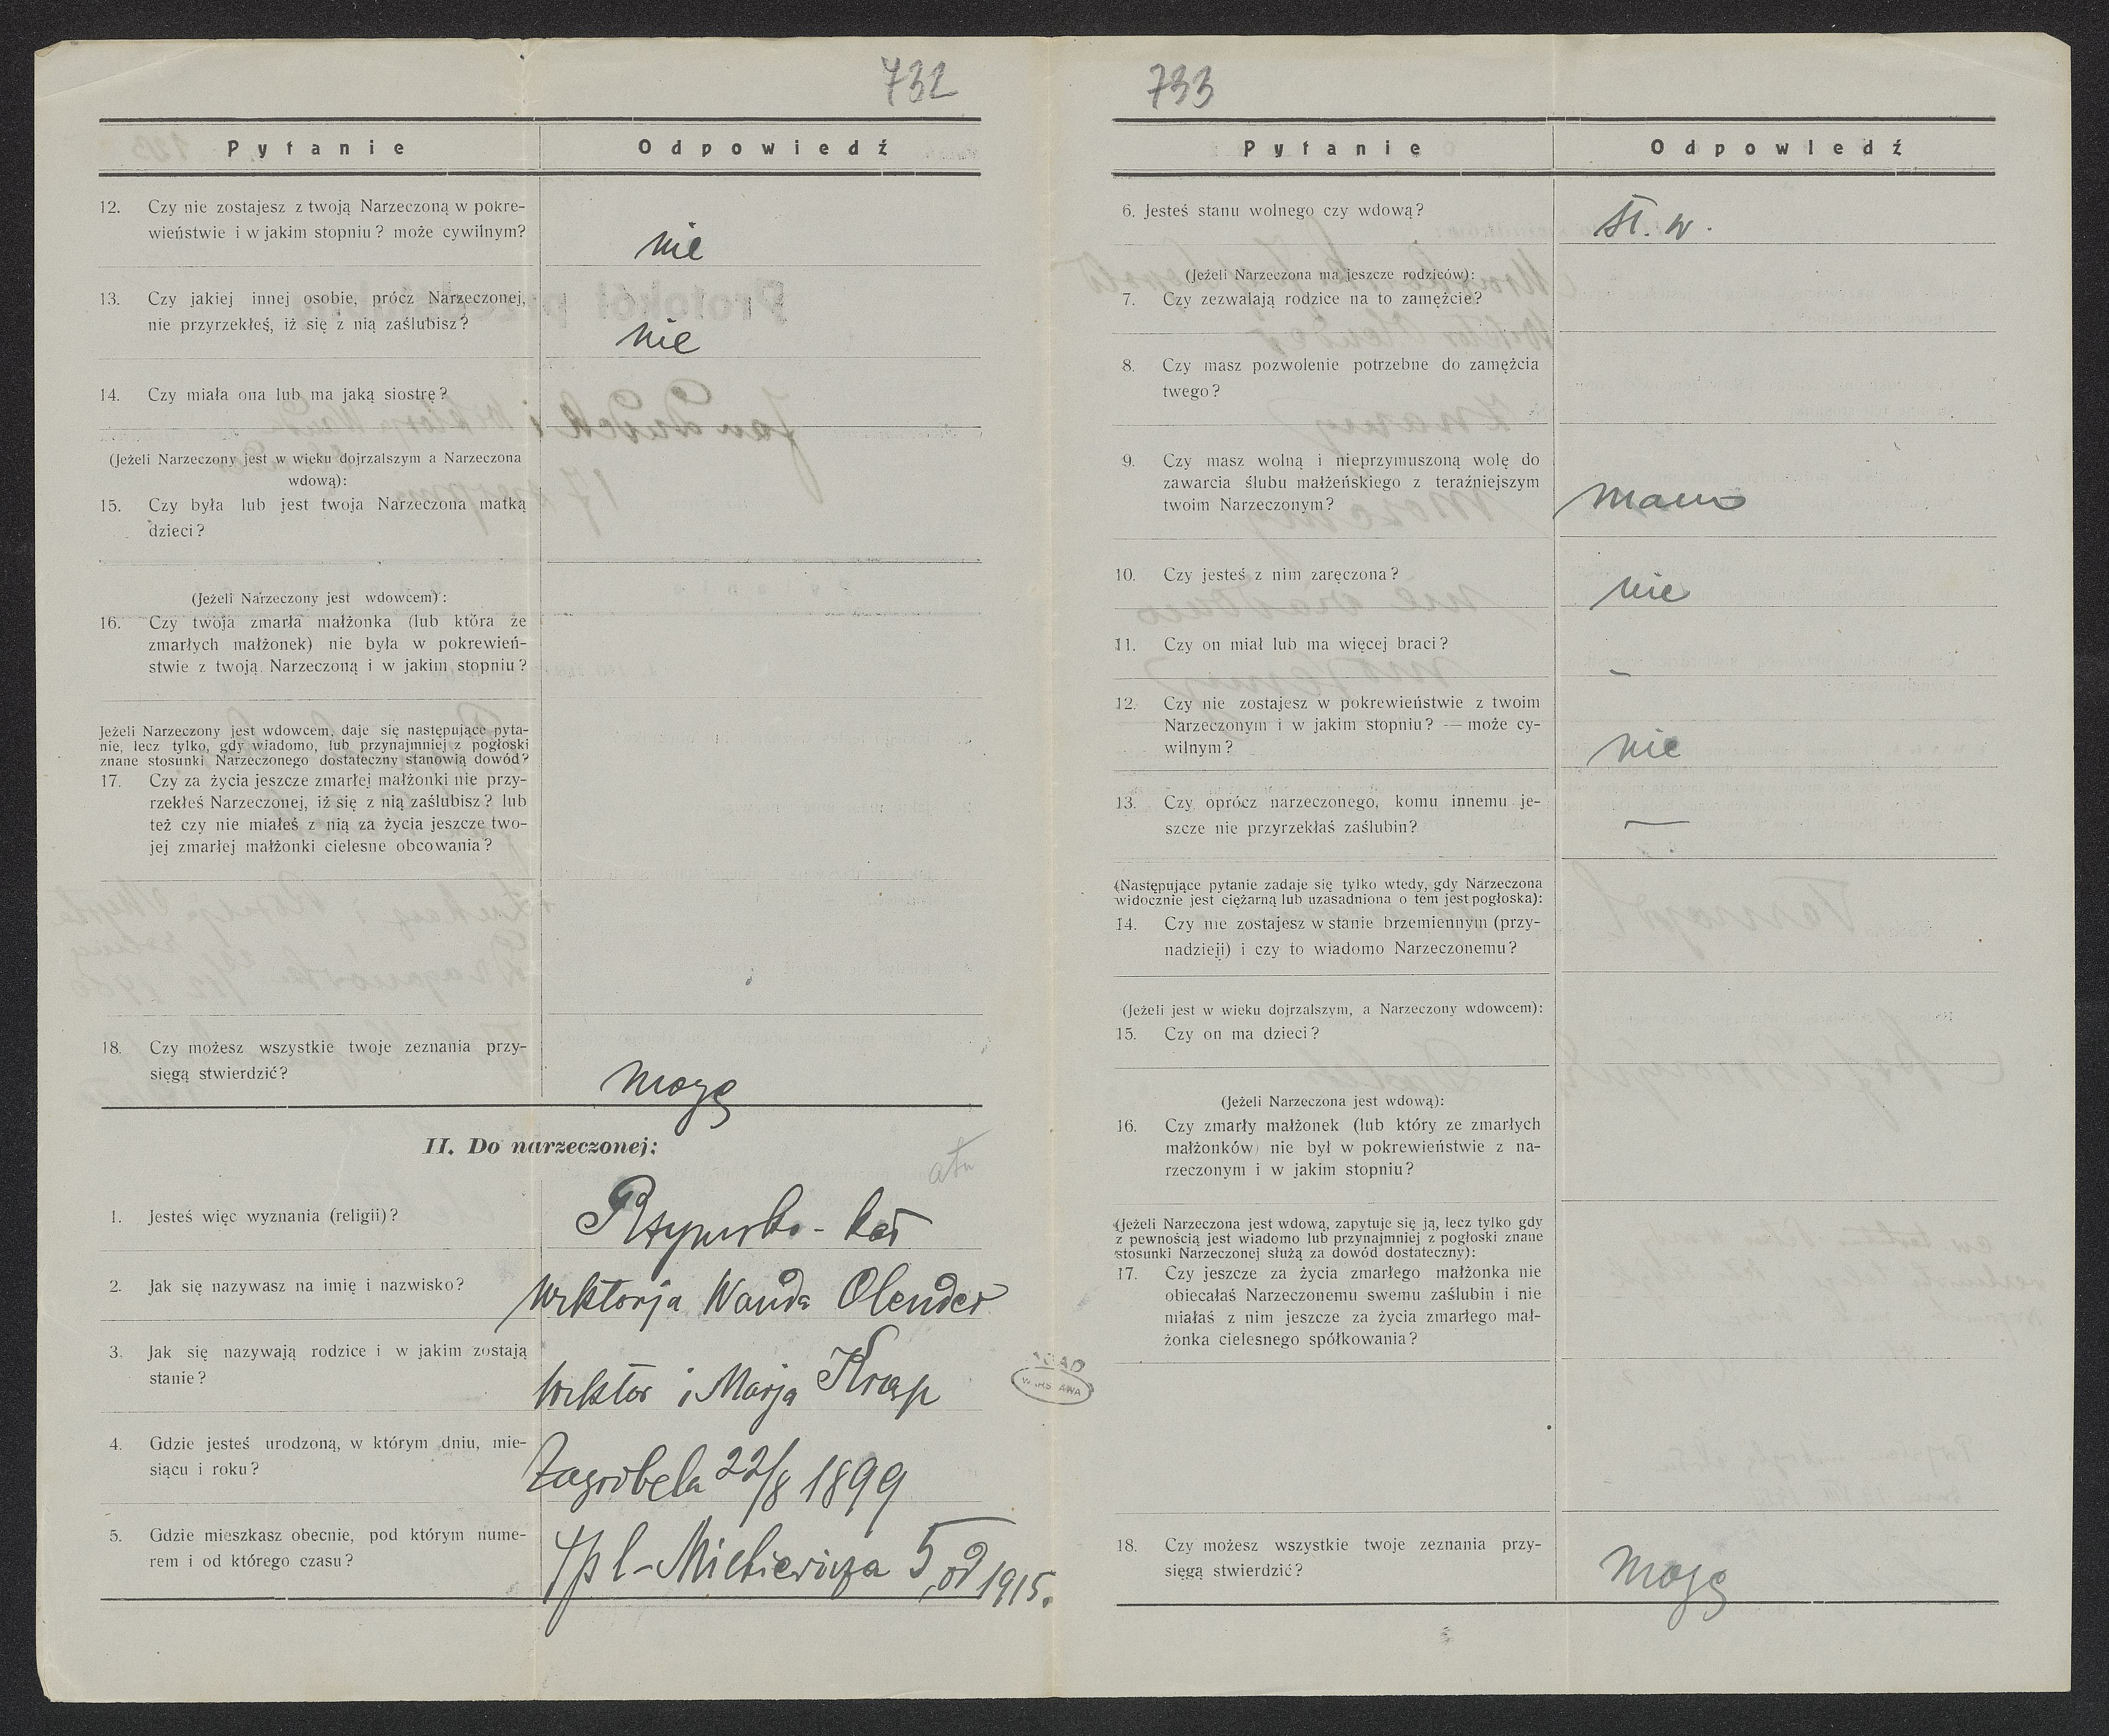 732
Pytanie Odpowiedź
12. Czy nie zostajesz z twoją Narzeczoną w pokre-
wieństwie i w jakim stopniu? może cywilnym?
nie
13. Czy jakiej innej osobie, prócz Narzeczonej,
nie przyrzekłeś, iż się z nią zaślubisz?
nie
14. Czy miała ona lub ma jaką siostrę?
(Jeżeli Narzeczony jest w wieku dojrzalszym a Narzeczona
wdową):
15. Czy była lub jest twoja Narzeczona matką
dzieci?
(Jeżeli Narzeczony jest wdowcem):
16. Czy twoja zmarła małżonka (lub która ze
zmarłych małżonek) nie była w pokrewień-
stwie z twoją Narzeczoną i w jakim stopniu?
Jeżeli Narzeczony jest wdowcem, daje się następujące pyta-
nie, lecz tylko, gdy wiadomo, lub przynajmniej z pogłoski
znane stosunki Narzeczonego dostateczny stanowią dowód?
17. Czy za życia jeszcze zmarłej małżonki nie przy-
rzekłeś Narzeczonej, iż się z nią zaślubisz? lub
też czy nie miałeś z nią za życia jeszcze two-
jej zmarłej małżonki cielesne obcowania?
18. Czy możesz wszystkie twoje zeznania przy-
sięgą stwierdzić?
mogę
II. Do narzeczonej:
1. Jesteś więc wyznania (religii)?
Rzymsko-kat
2. Jak się nazywasz na imię i nazwisko?
Wiktorja Wanda Olender
3. Jak się nazywają rodzice i w jakim zostają
stanie?
Wiktor i Marja Krasp
4. Gdzie jesteś urodzoną, w którym dniu, mie-
siącu i roku?
Zagrobela 22/8 1899
5. Gdzie mieszkasz obecnie, pod którym nume-
rem i od którego czasu?
pl-Mickiewicza 5, od 1915.
AGAD
WARSZAWA
733
Pytanie Odpowiedź
6. Jesteś stanu wolnego czy wdową?
st. w.
(Jeżeli Narzeczona ma jeszcze rodziców):
7. Czy zezwalają rodzice na to zamężcie?
8. Czy masz pozwolenie potrzebne do zamężcia
twego?
9. Czy masz wolną i nieprzymuszoną wolę do
zawarcia ślubu małżeńskiego z teraźniejszym
twoim Narzeczonym?
mam
10. Czy jesteś z nim zaręczona?
nie
11. Czy on miał lub ma więcej braci?
–
12. Czy nie zostajesz w pokrewieństwie z twoim
Narzeczonym i w jakim stopniu? — może cy-
wilnym?
nie
13. Czy oprócz narzeczonego, komu innemu je-
szcze nie przyrzekłaś zaślubin?
—
(Następujące pytanie zadaje się tylko wtedy, gdy Narzeczona
widocznie jest ciężarną lub uzasadniona o tem jest pogłoska):
14. Czy nie zostajesz w stanie brzemiennym (przy-
nadzieji) i czy to wiadomo Narzeczonemu?
(Jeżeli jest w wieku dojrzalszym, a Narzeczony wdowcem):
15. Czy on ma dzieci?
(Jeżeli Narzeczona jest wdową):
16. Czy zmarły małżonek (lub który ze zmarłych
małżonków) nie był w pokrewieństwie z na-
rzeczonym i w jakim stopniu?
(Jeżeli Narzeczona jest wdową, zapytuje się ją, lecz tylko gdy
z pewnością jest wiadomo lub przynajmniej z pogłoski znane
stosunki Narzeczonej służą za dowód dostateczny):
17. Czy jeszcze za życia zmarłego małżonka nie
obiecałaś Narzeczonemu swemu zaślubin i nie
miałaś z nim jeszcze za życia zmarłego mał-
żonka cielesnego spółkowania?
18. Czy możesz wszystkie twoje zeznania przy-
sięgą stwierdzić?
mogę